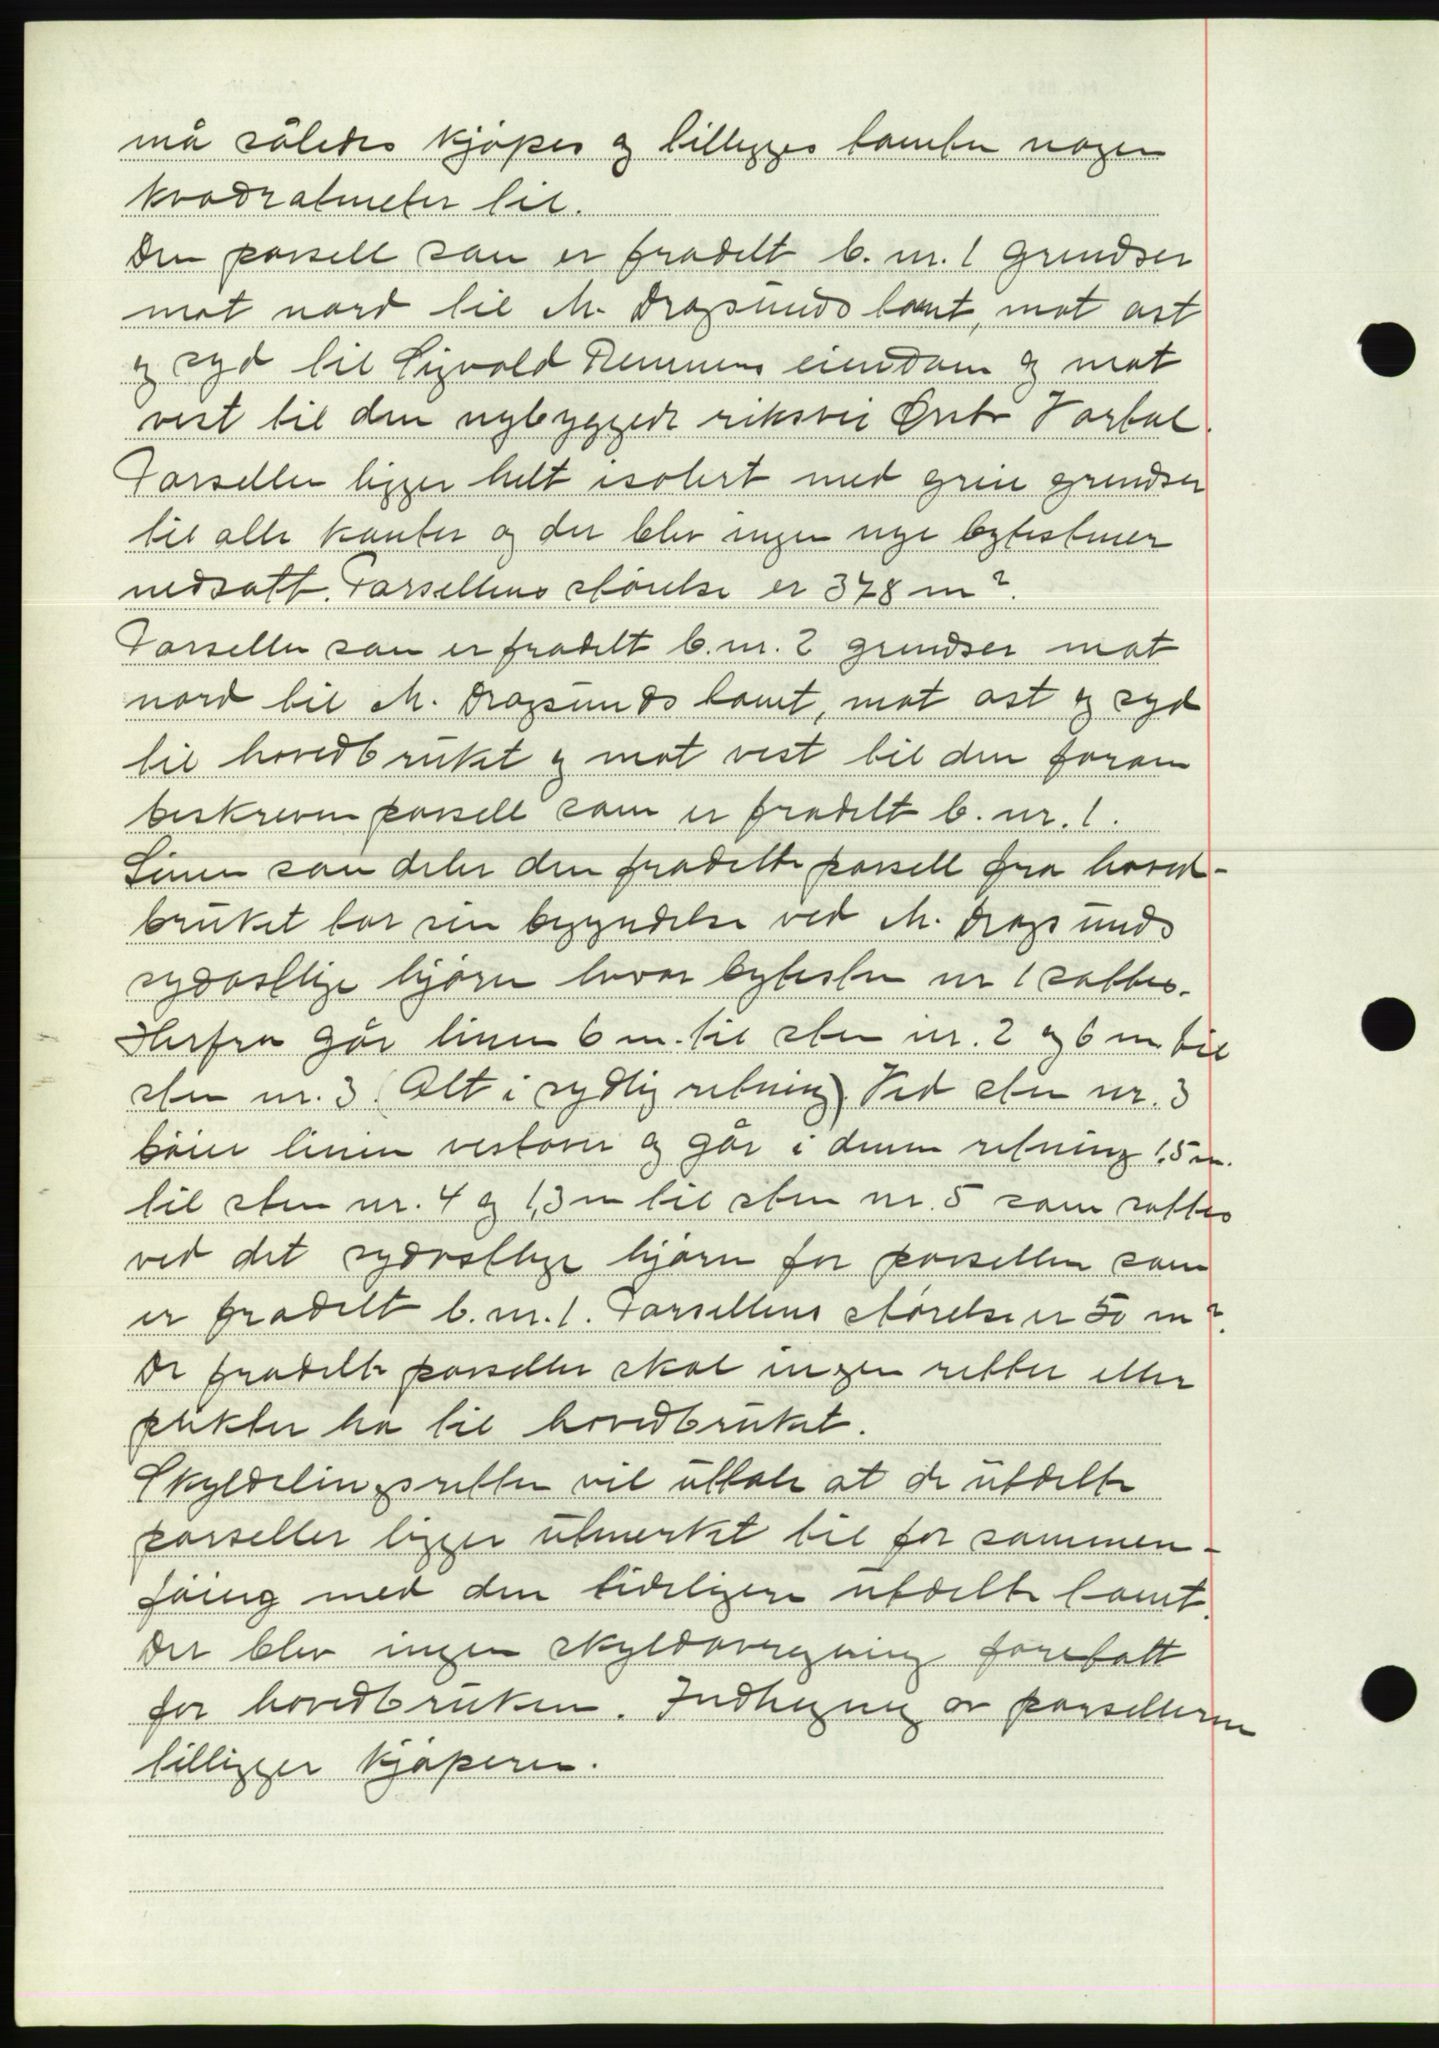 må således kjöpes og tillegges tomten nogen
kvadratmeter til.
Den parsell som er fradelt b. nr. 1 grendser
mot nord til M. Dragsunds tomt, mot øst
og syd til Sigvald Remmens eiendom og mot
vest til den nybyggede riksvei
Parsellen ligger helt isolert med greie grendser
til alle kanter og der blev ingen nye bytestener
nedsatt. Parsellens störelse er 378 m².
Parsellen som er fradelt b. nr. 2 grendser mot
nord til M. Dragsunds tomt, mot øst og syd
til hovedbruket og mot vest til den foran
beskreven parsell som er fradelt b. nr. 1.
Linen som deler den fradelte parsell fra hoved-
bruket tar sin begyndelse ved M. Dragsunds
sydøstlige hjörne hvor bytesten nr 1 sattes.
Herfra går linen 6 m. til sten nr. 2 og 6 m til
sten nr. 3. (Alt i sydlig retning). Ved sten nr. 3
böier linien vestover og går i denne retning 1,5 m.
til sten nr. 4 og 1,3 m til sten nr. 5 som sattes
ved det sydøstlige hjörne for parsellen som
er fradelt b. nr. 1. Parsellens störelse er 50 m².
De fradelte parseller skal ingen retter eller
plikter ha til hovedbruket.
Skyldelingsretten vil uttale at de utdelte
parseller ligger utmerket til for sammen-
föing med den tideligere utdelte tomt.
Der blev ingen skyldavregning foretatt
for hovedbruken. Indhegning av parsellerne
tilligger kjöperen.